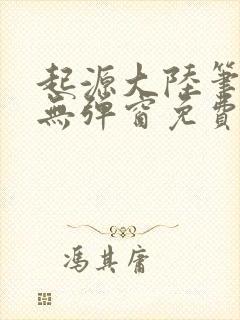 起源大陸筆
無彈窗免費
馮其庸